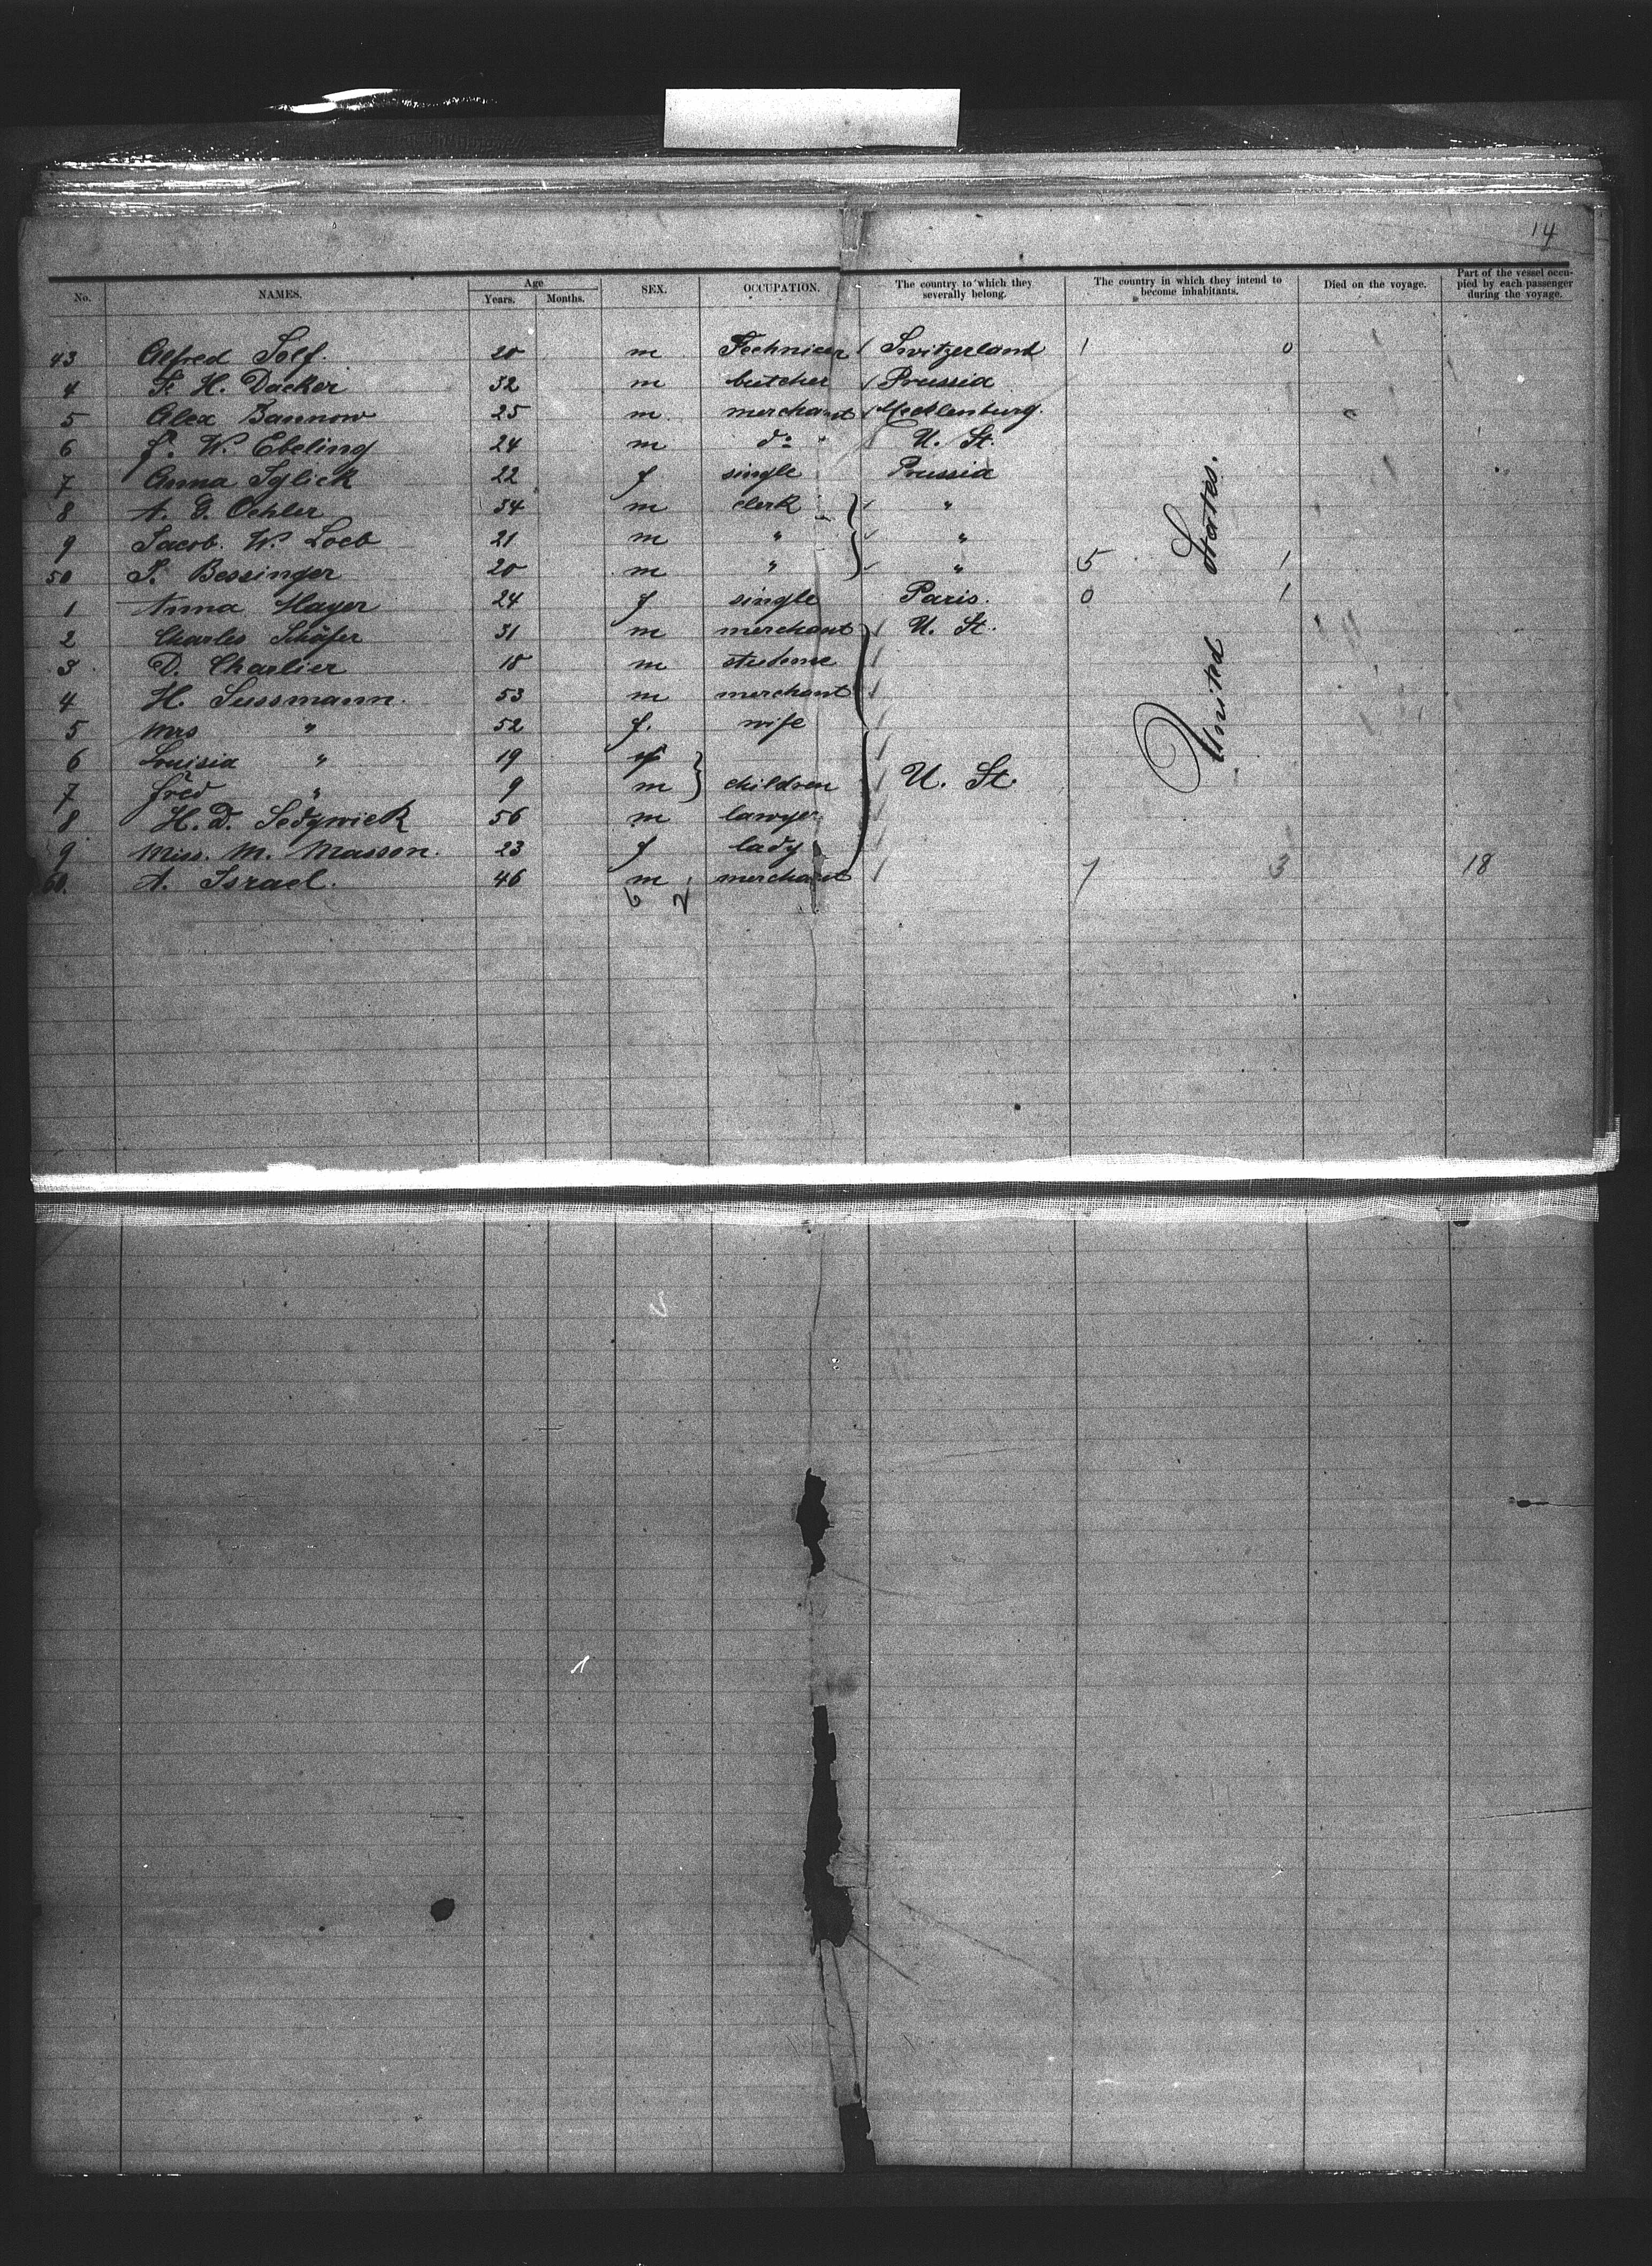 14
No. NAMES. Age Years. Months. SEX. OCCUPATION. The country to which they severally belong. The country in which they intend to become inhabitants. Died on the voyage. Part of the vessel occupied by each passenger during the voyage.
43 Alfred Solf. 20 m Technicer Switzerland 1 0
4 F. H. Dacker 32 m butcher Prussia
5 Alex Bannow 25 m. merchant Mecklenburg.
6 F. W. Ebeling 24 m do U. St.
7 Anna Sylick 22 f single Prussia
8 A. G. Oehler 34 m clerk "
9 Jacob. W. Loeb 21 m " "
50 S. Bessinger 20 m " " 5 1
1 Anna Mayer 24 f single Paris. 0 1
2 Charles Schäfer 31 m merchant U. St.
3 D. Charlier 18 m studeme
4 H. Sussmann. 53 m merchant
5 Mrs " 52 f. wife
6 Louisia " 19 f
7 Fred " 9 m children U. St.
8 H. D. Sedgwick 56 m lawyer
9 Miss. M. Masson. 23 f lady
60. A. Israel. 46 m merchant 7 3 18
6 2
United States.